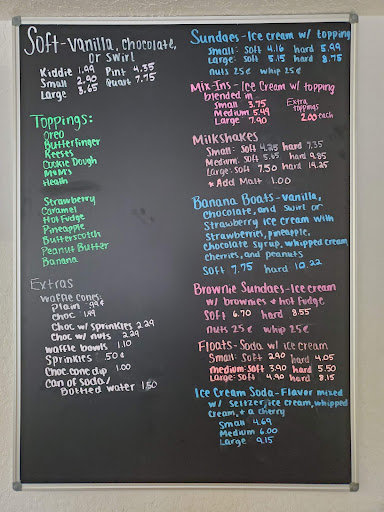 Soft-Vanilla, Chocolate,
or Swirl
Kiddie 1.99 Pint 4.35
Small 2.90 Quart 7.75
Large 3.65
Toppings:
Oreo
Butterfinger
Reeses
Cookie Dough
M&M's
Heath
Strawberry
Caramel
Hot Fudge
Pineapple
Butterscotch
Peanut Butter
Banana
Extras
Waffle Cones:
Plain .99¢
Choc 1.49
Choc w/ sprinkles 2.29
Choc w/ nuts 2.29
Waffle bowls 1.10
Sprinkles .50¢
Choc cone dip 1.00
Can of soda/
Bottled water 1.50
Sundaes-Ice cream w/ topping
Small: Soft 4.16 hard 5.99
Large: Soft 5.15 hard 8.75
nuts 25¢ whip 25¢
Mix-Ins-Ice Cream w/ topping
blended in
Small 3.75
Medium 5.49
Large 7.90
Extra
toppings
2.00 each
Milkshakes
Small: Soft 4.25 hard 7.35
Medium: Soft 5.65 hard 9.85
Large: Soft 7.50 hard 14.25
*Add Malt 1.00
Banana Boats-Vanilla,
chocolate, and swirl or
Strawberry Ice cream with
Strawberries, pineapple,
chocolate syrup, whipped cream,
cherries, and peanuts
Soft 7.75 hard 10.22
Brownie Sundaes-Ice cream
w/ brownies + hot fudge
Soft 6.70 hard 8.55
nuts 25¢ whip 25¢
Floats-Soda w/ ice cream
Small: Soft 2.90 hard 4.05
medium: Soft 3.90 hard 5.50
Large: Soft 4.90 hard 8.15
Ice Cream Soda-Flavor mixed
w/ seltzer, ice cream, whipped
cream, + a cherry
Small 4.69
Medium 6.00
Large 9.15